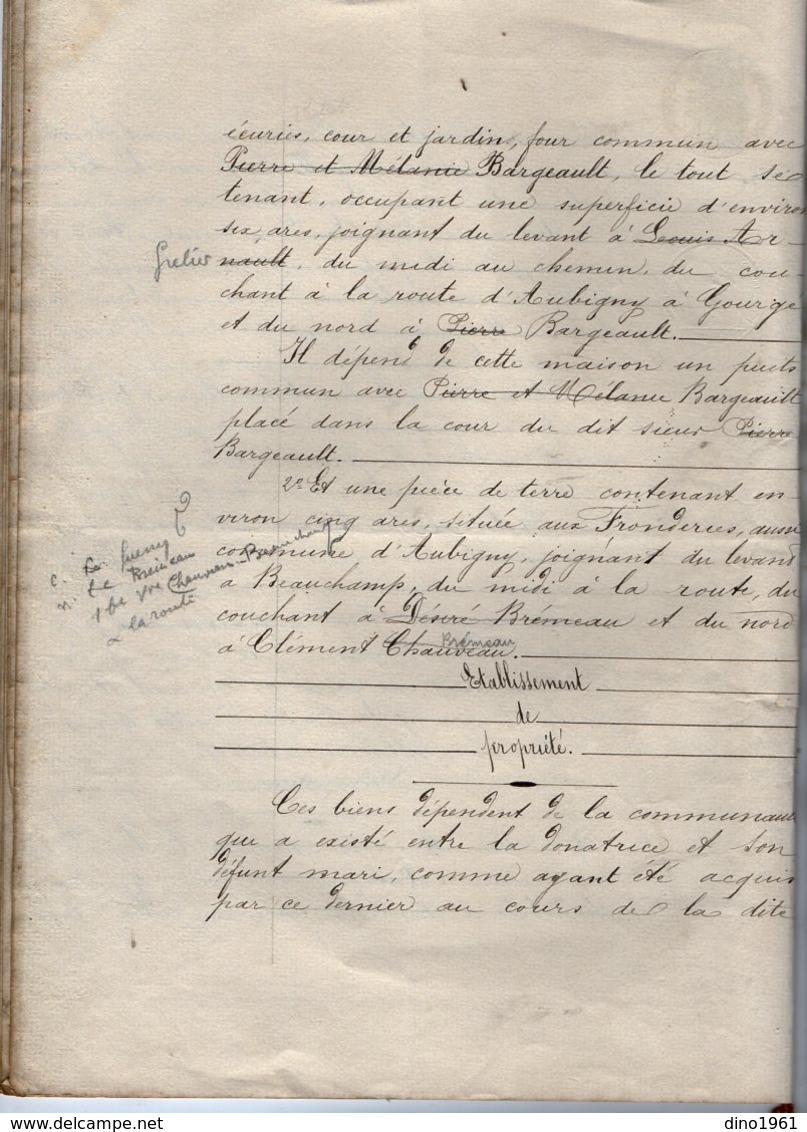 écuries, cour et jardin, four commun avec
Pierre et Mélanie Bargeault, le tout se
tenant, occupant une superficie d'environ
six ares, joignant du levant à Louis Ar-
Grelier
nault, du midi au chemin, du cou-
chant à la route d'Aubigny à Gourgé
et du nord à Pierre Bargeault.
Il dépend de cette maison un puits
commun avec Pierre et Mélanie Bargeault
placé dans la cour du dit sieur Pierre
Bargeault.
2° Et une pièce de terre contenant en-
viron cinq ares, située aux Fronderies, aussi
commune d'Aubigny, joignant du levant
à Beauchamp, du midi à la route, du
couchant à Désiré Brémeau et du nord
à Clément Chauveau.
Brémeau
c. Le
n. Le Brémeau
Vve Chauveau-Beauchamp
la route
Etablissement
de
propriété.
Ces biens dépendent de la communauté
qui a existé entre la donatrice et son
défunt mari, comme ayant été acquis
par ce dernier au cours de la dite
dino1961